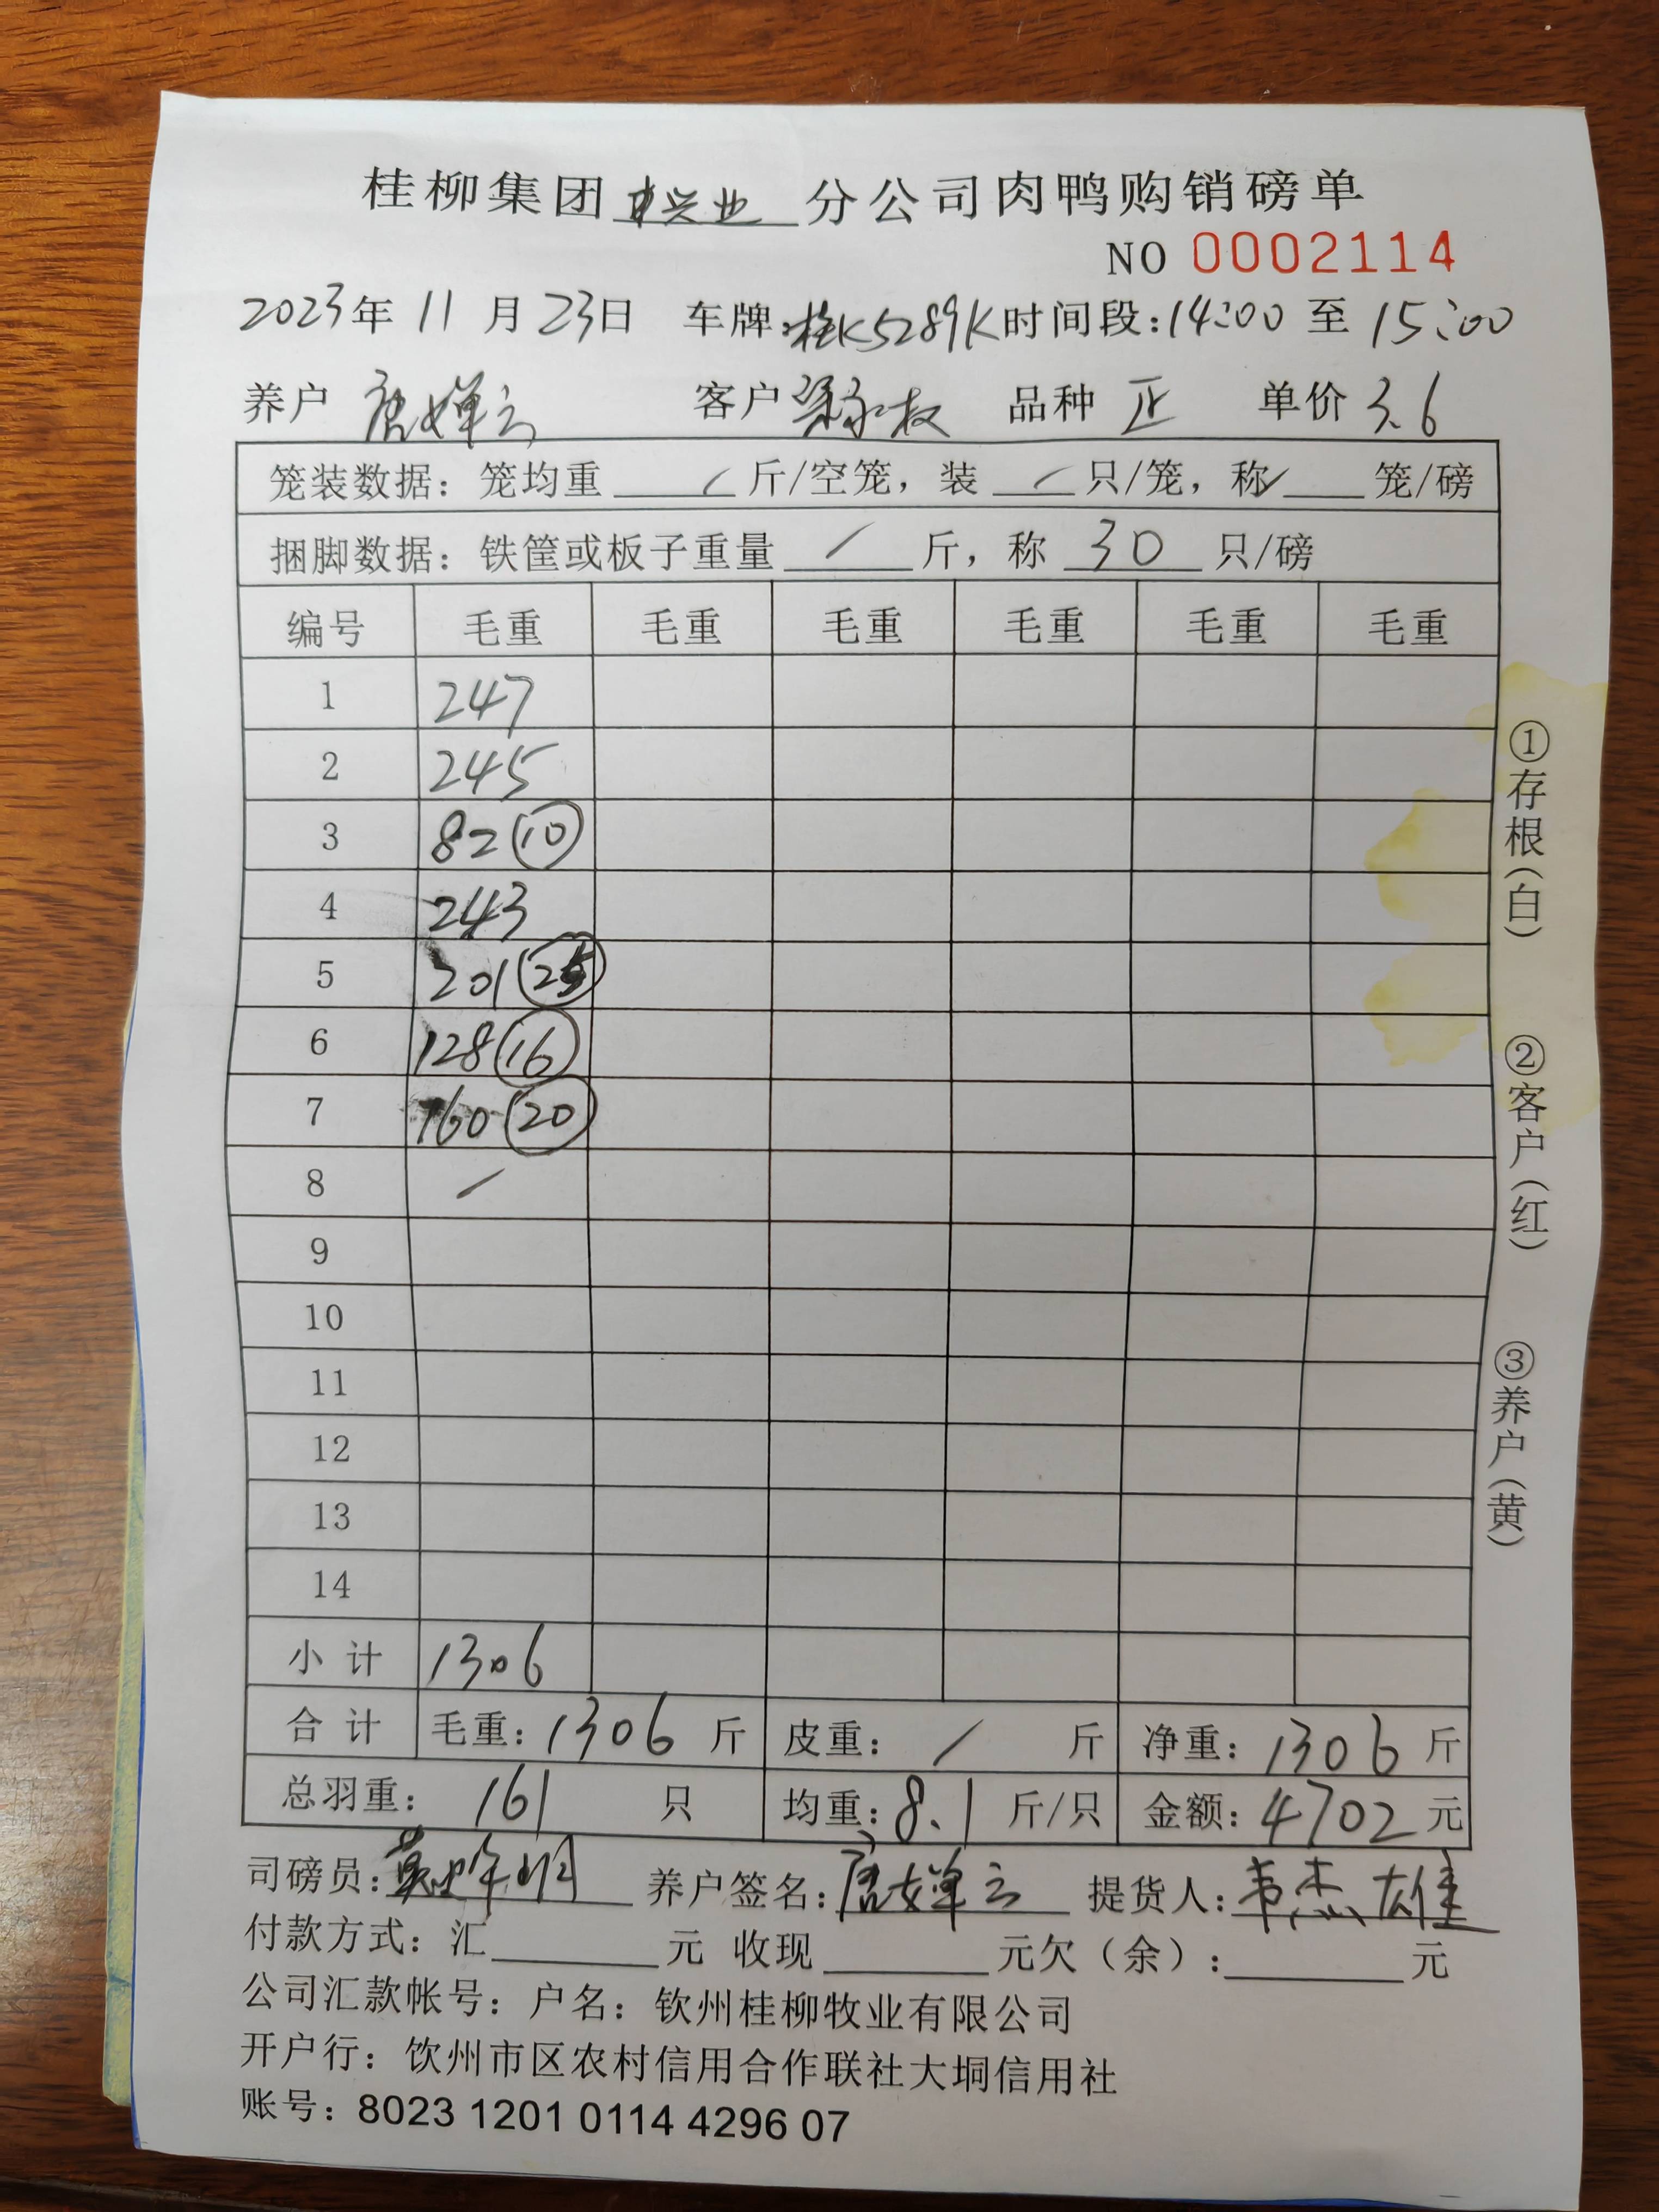 桂柳集团兴业分公司肉鸭购销磅单
NO 0002114
2023年 11 月 23日 车牌:桂K5289K 时间段:14:00 至 15:00
养户 唐婵云 客户 梁永权 品种 正 单价 3.6
笼装数据：笼均重 / 斤/空笼，装 / 只/笼，称 / 笼/磅
捆脚数据：铁筐或板子重量 / 斤，称 30 只/磅
编号 毛重 毛重 毛重 毛重 毛重 毛重
1 247
2 245
3 82 ⑩
4 243
5 201 ㉕
6 128 ⑯
7 160 ⑳
8 /
9
10
11
12
13
14
小 计 1306
合 计 毛重：1306 斤 皮重： / 斤 净重：1306 斤
总羽重： 161 只 均重：8.1 斤/只 金额：4702 元
司磅员： 养户签名：唐婵云 提货人：韦杰雄
付款方式：汇 元 收现 元欠（余）： 元
公司汇款帐号：户名：钦州桂柳牧业有限公司
开户行：钦州市区农村信用合作联社大垌信用社
账号：8023 1201 0114 4296 07
①存根（白）
②客户（红）
③养户（黄）